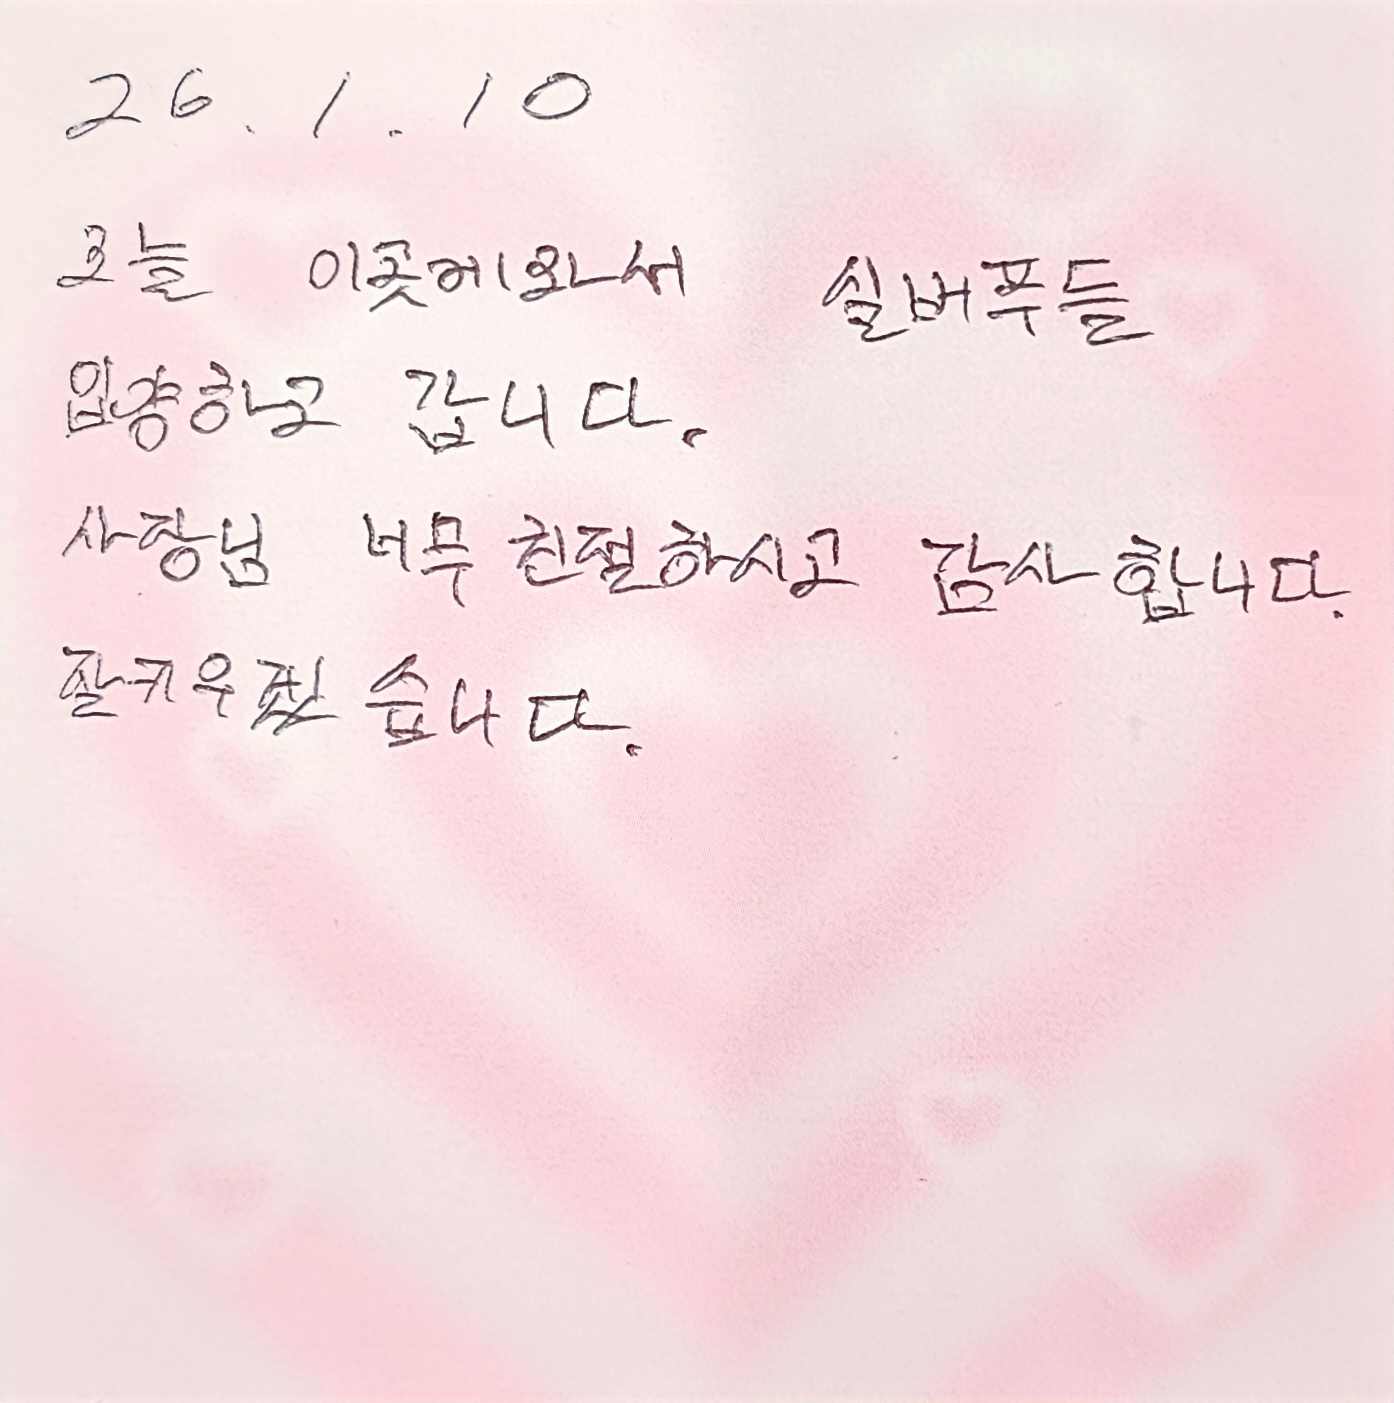 26. 1. 10
오늘 이곳에와서 실버푸들
입양하고 갑니다.
사장님 너무 친절하시고 감사합니다.
잘키우겠습니다.